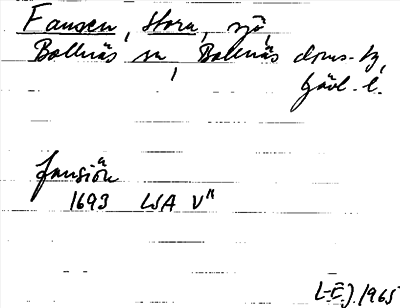 Fansen, Stora, sjö,
Bollnäs sn, Bollnäs doms.-tg,
Gävl. l.
fansiön
1693 LSA V"
L-E.J. 1965